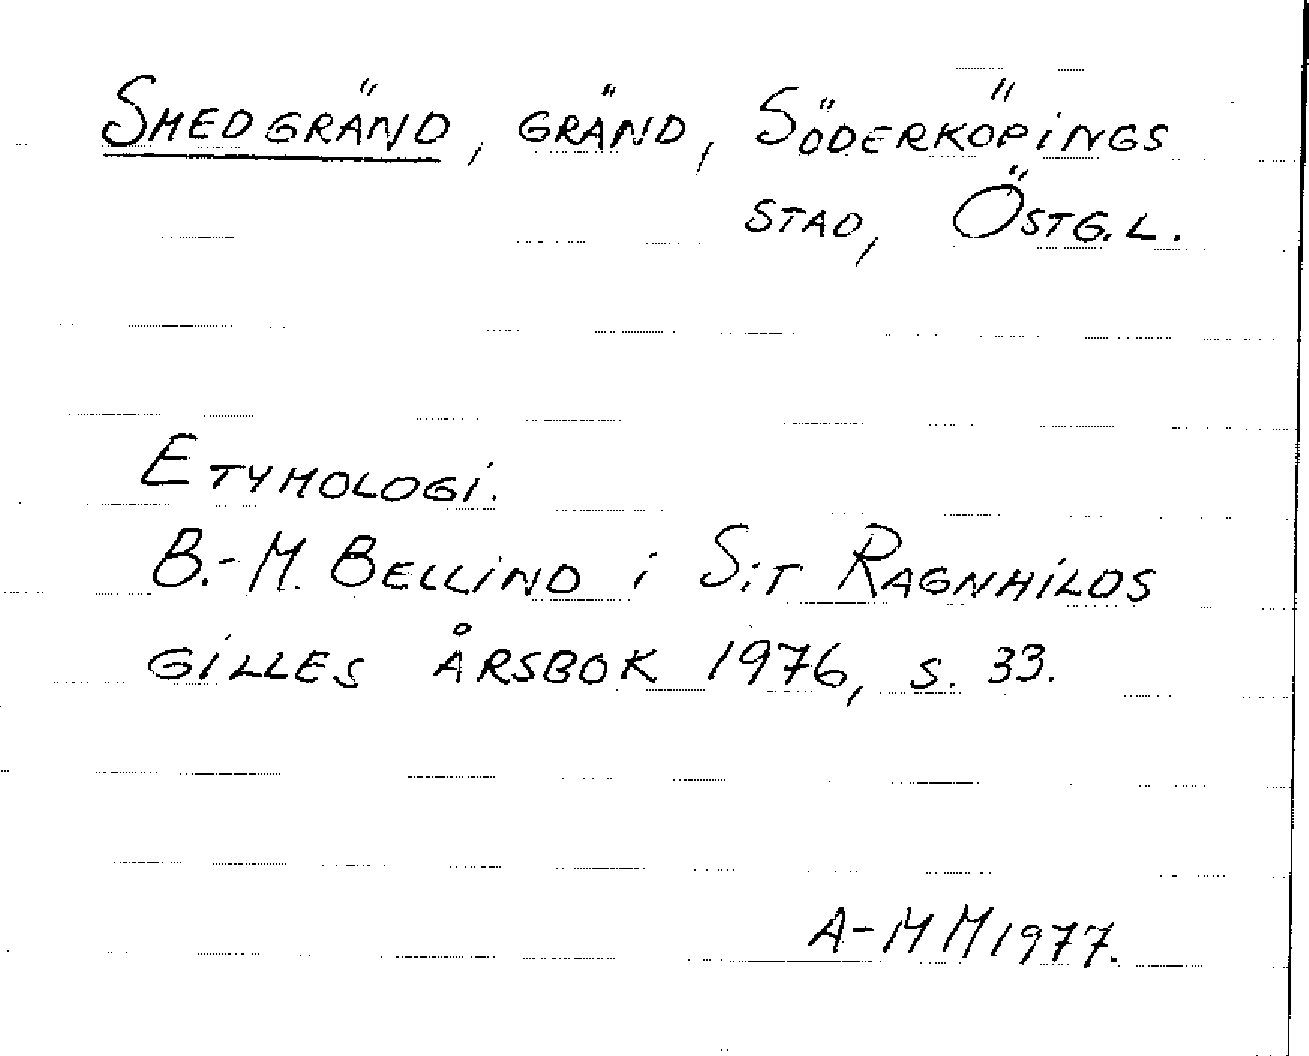 SMEDGRÄND, GRÄND, SÖDERKÖPINGS
STAD, ÖSTG.L.
ETYMOLOGI.
B.-M. BELLIND i S:T RAGNHILDS
GILLES ÅRSBOK 1976, S. 33.
A-MM 1977.